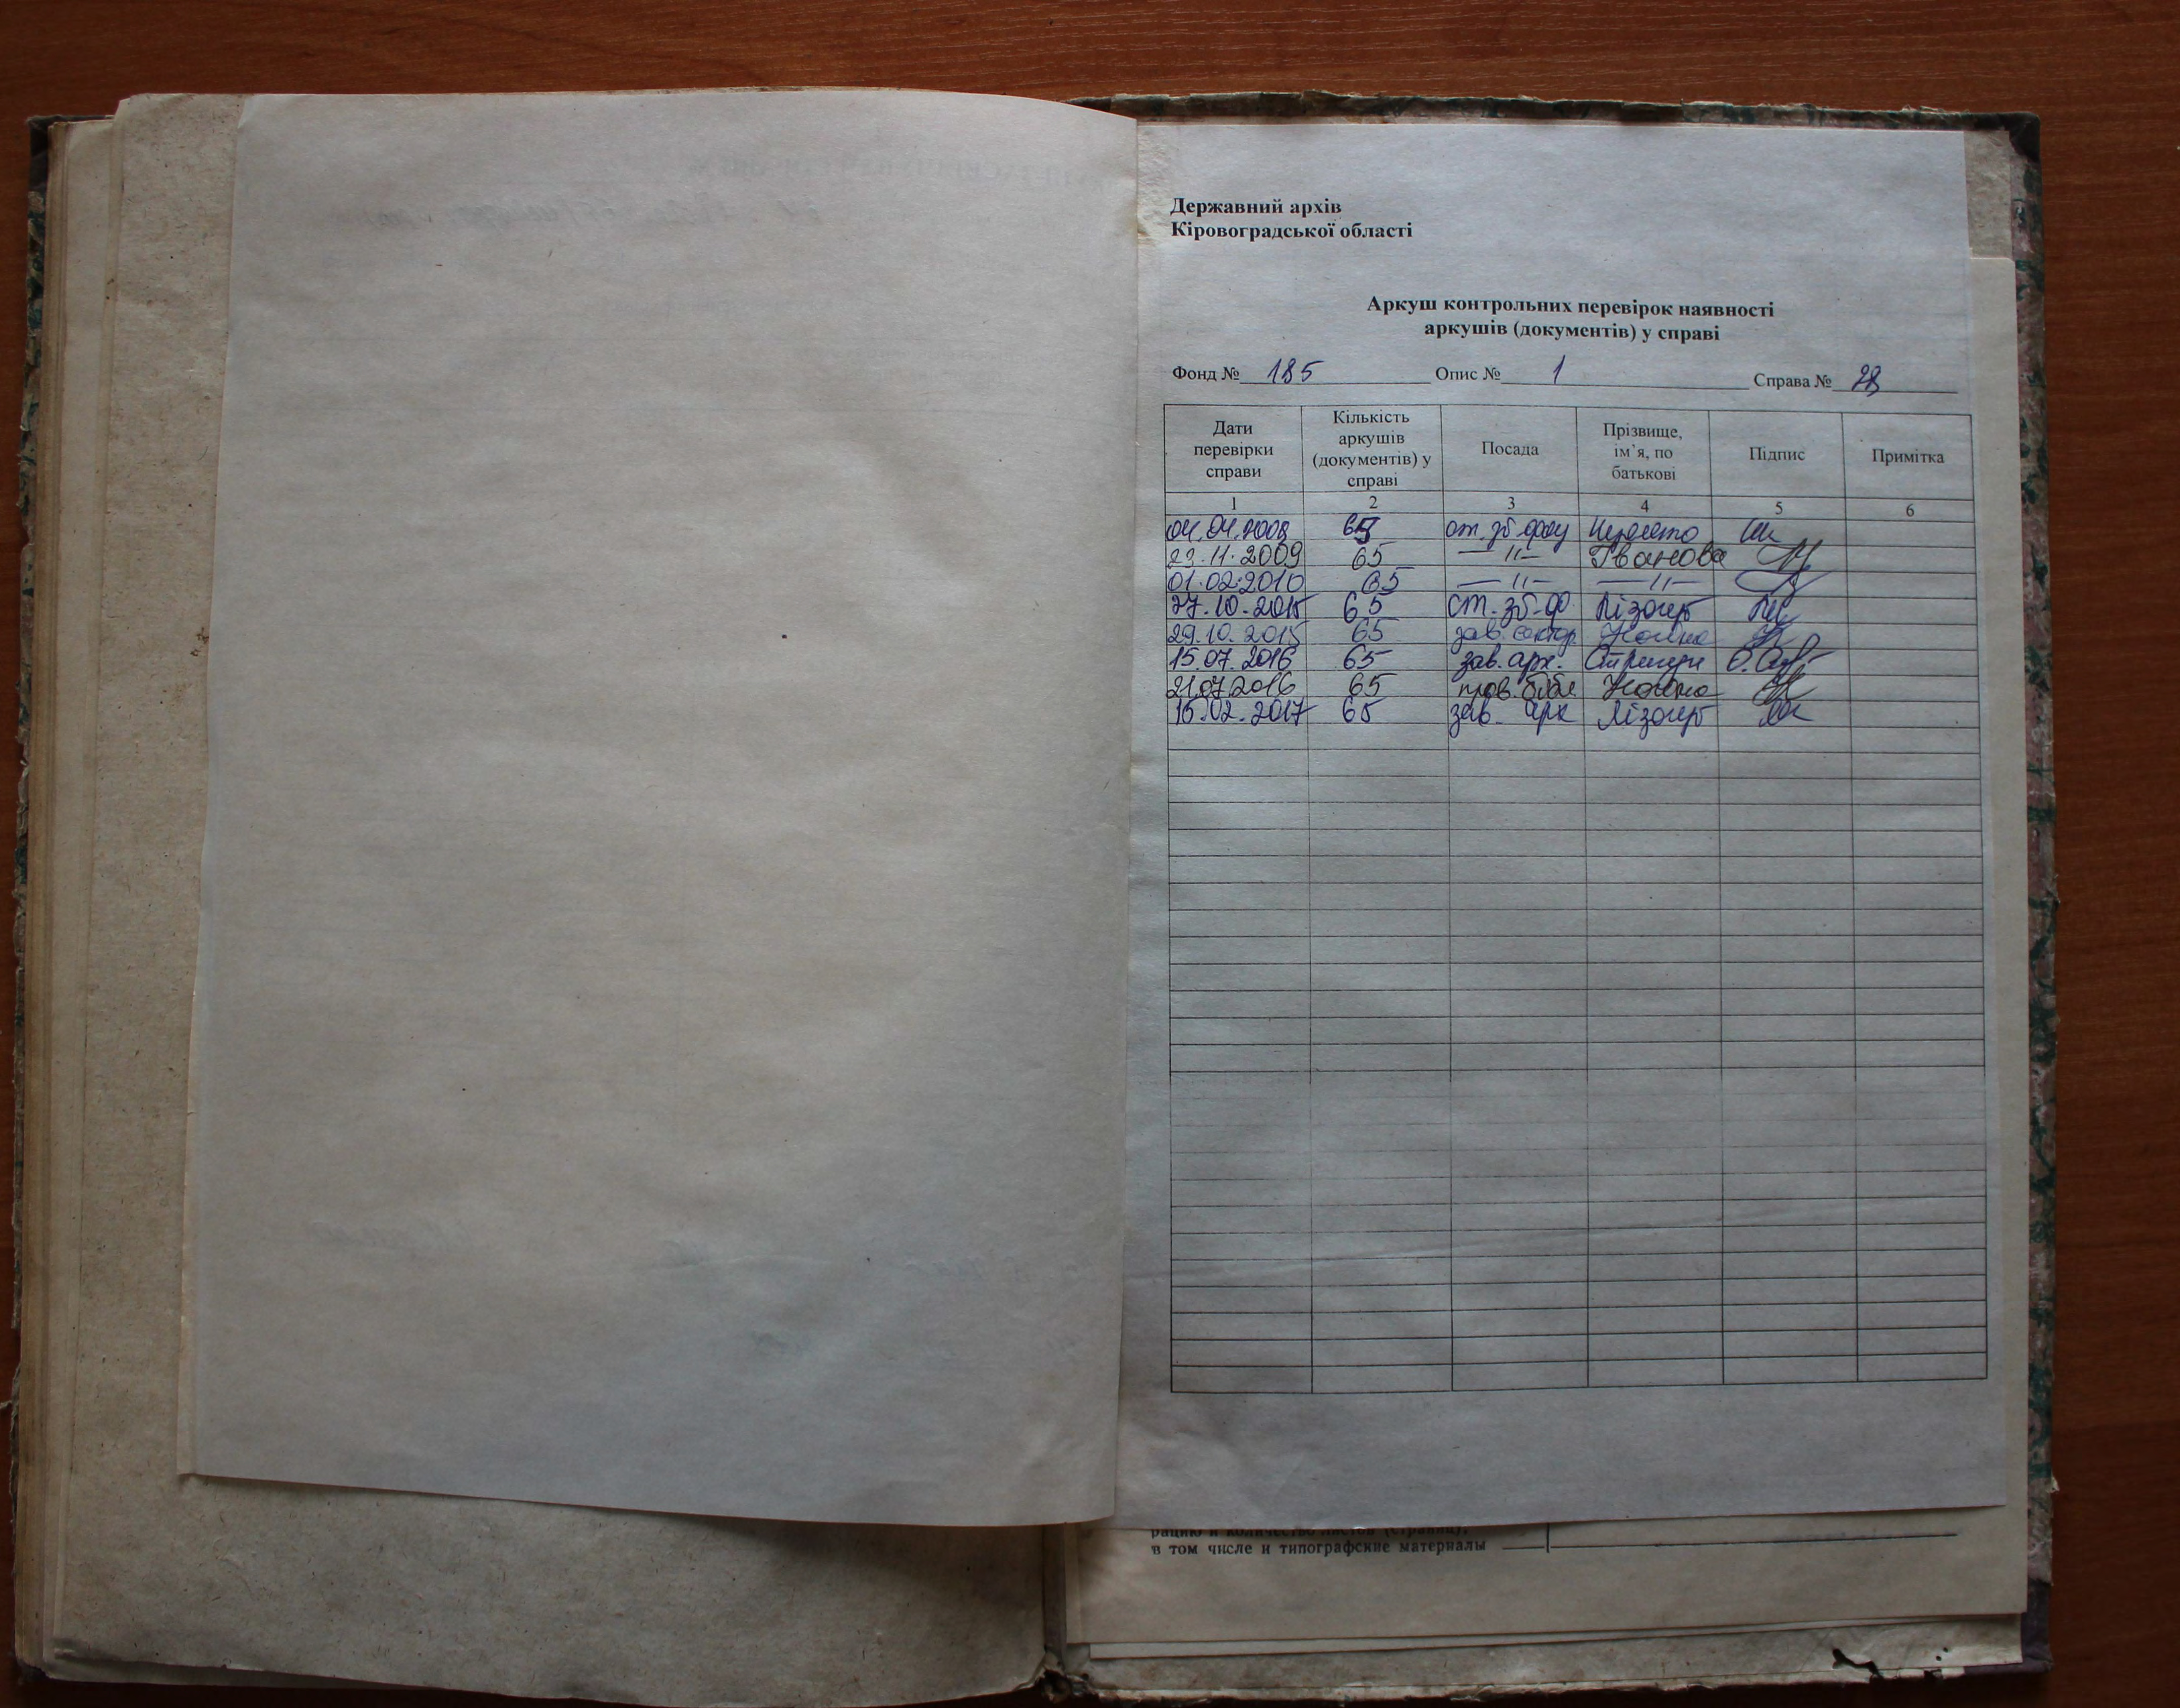 Державний архів
Кіровоградської області
Аркуш контрольних перевірок наявності
аркушів (документів) у справі
Фонд № 185 Опис № 1 Справа № 28
Дати перевірки справи
Кількість аркушів (документів) у справі
Посада
Прізвище, ім'я, по батькові
Підпис
Примітка
1 2 3 4 5 6
04.04.2008 65
23.11.2009 65 —"— Іванова
01.02.2010 65 —"— —"—
27.10.2015 65 ст. зб. ф. Лізогуб
29.10.2015 65 зав. сектор.
15.07.2016 65 зав. арх.
21.07.2016 65 пров. бібл
15.02.2017 65 зав. арх Лізогуб
рацию и количество листов (страниц),
в том числе и типографские материалы